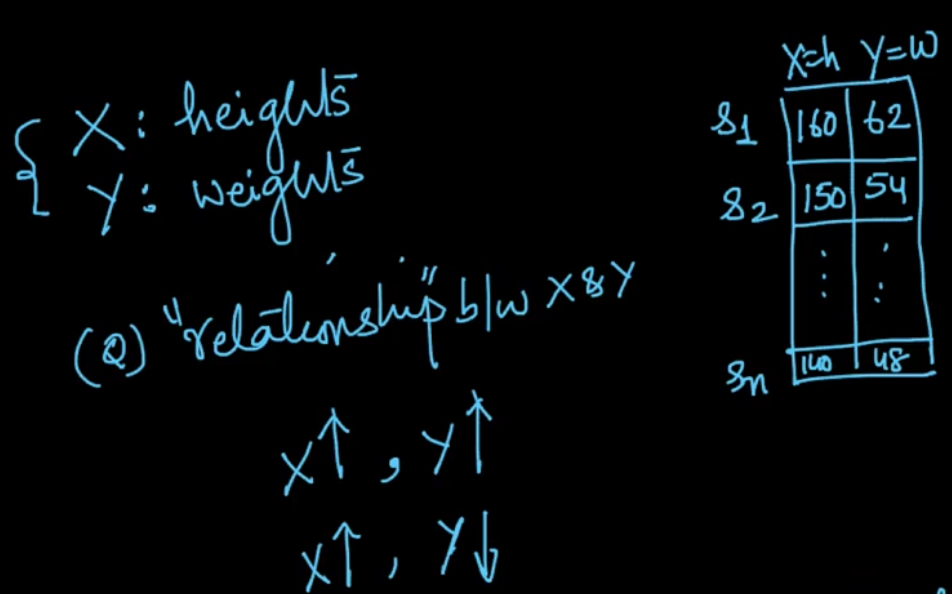 X: heights
Y: weights
(Q) "relationship" b/w X & Y
X↑, Y↑
X↑, Y↓
X=h Y=W
S1 160 62
S2 150 54
⋮ ⋮
Sn 140 48